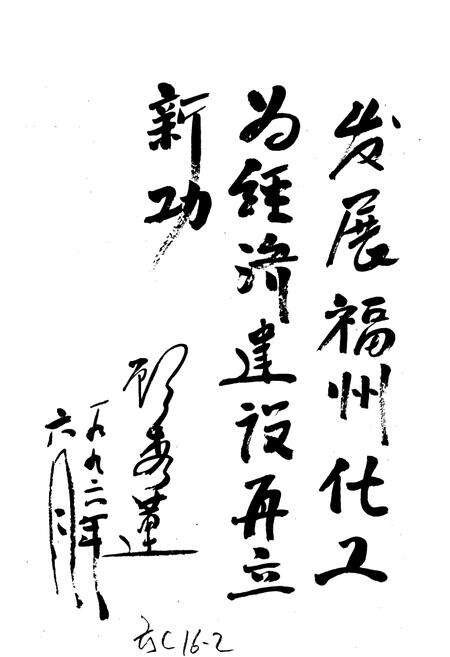 发展福州化工
为经济建设再立
新功
顾秀莲
一九九六年
六月
C16-2